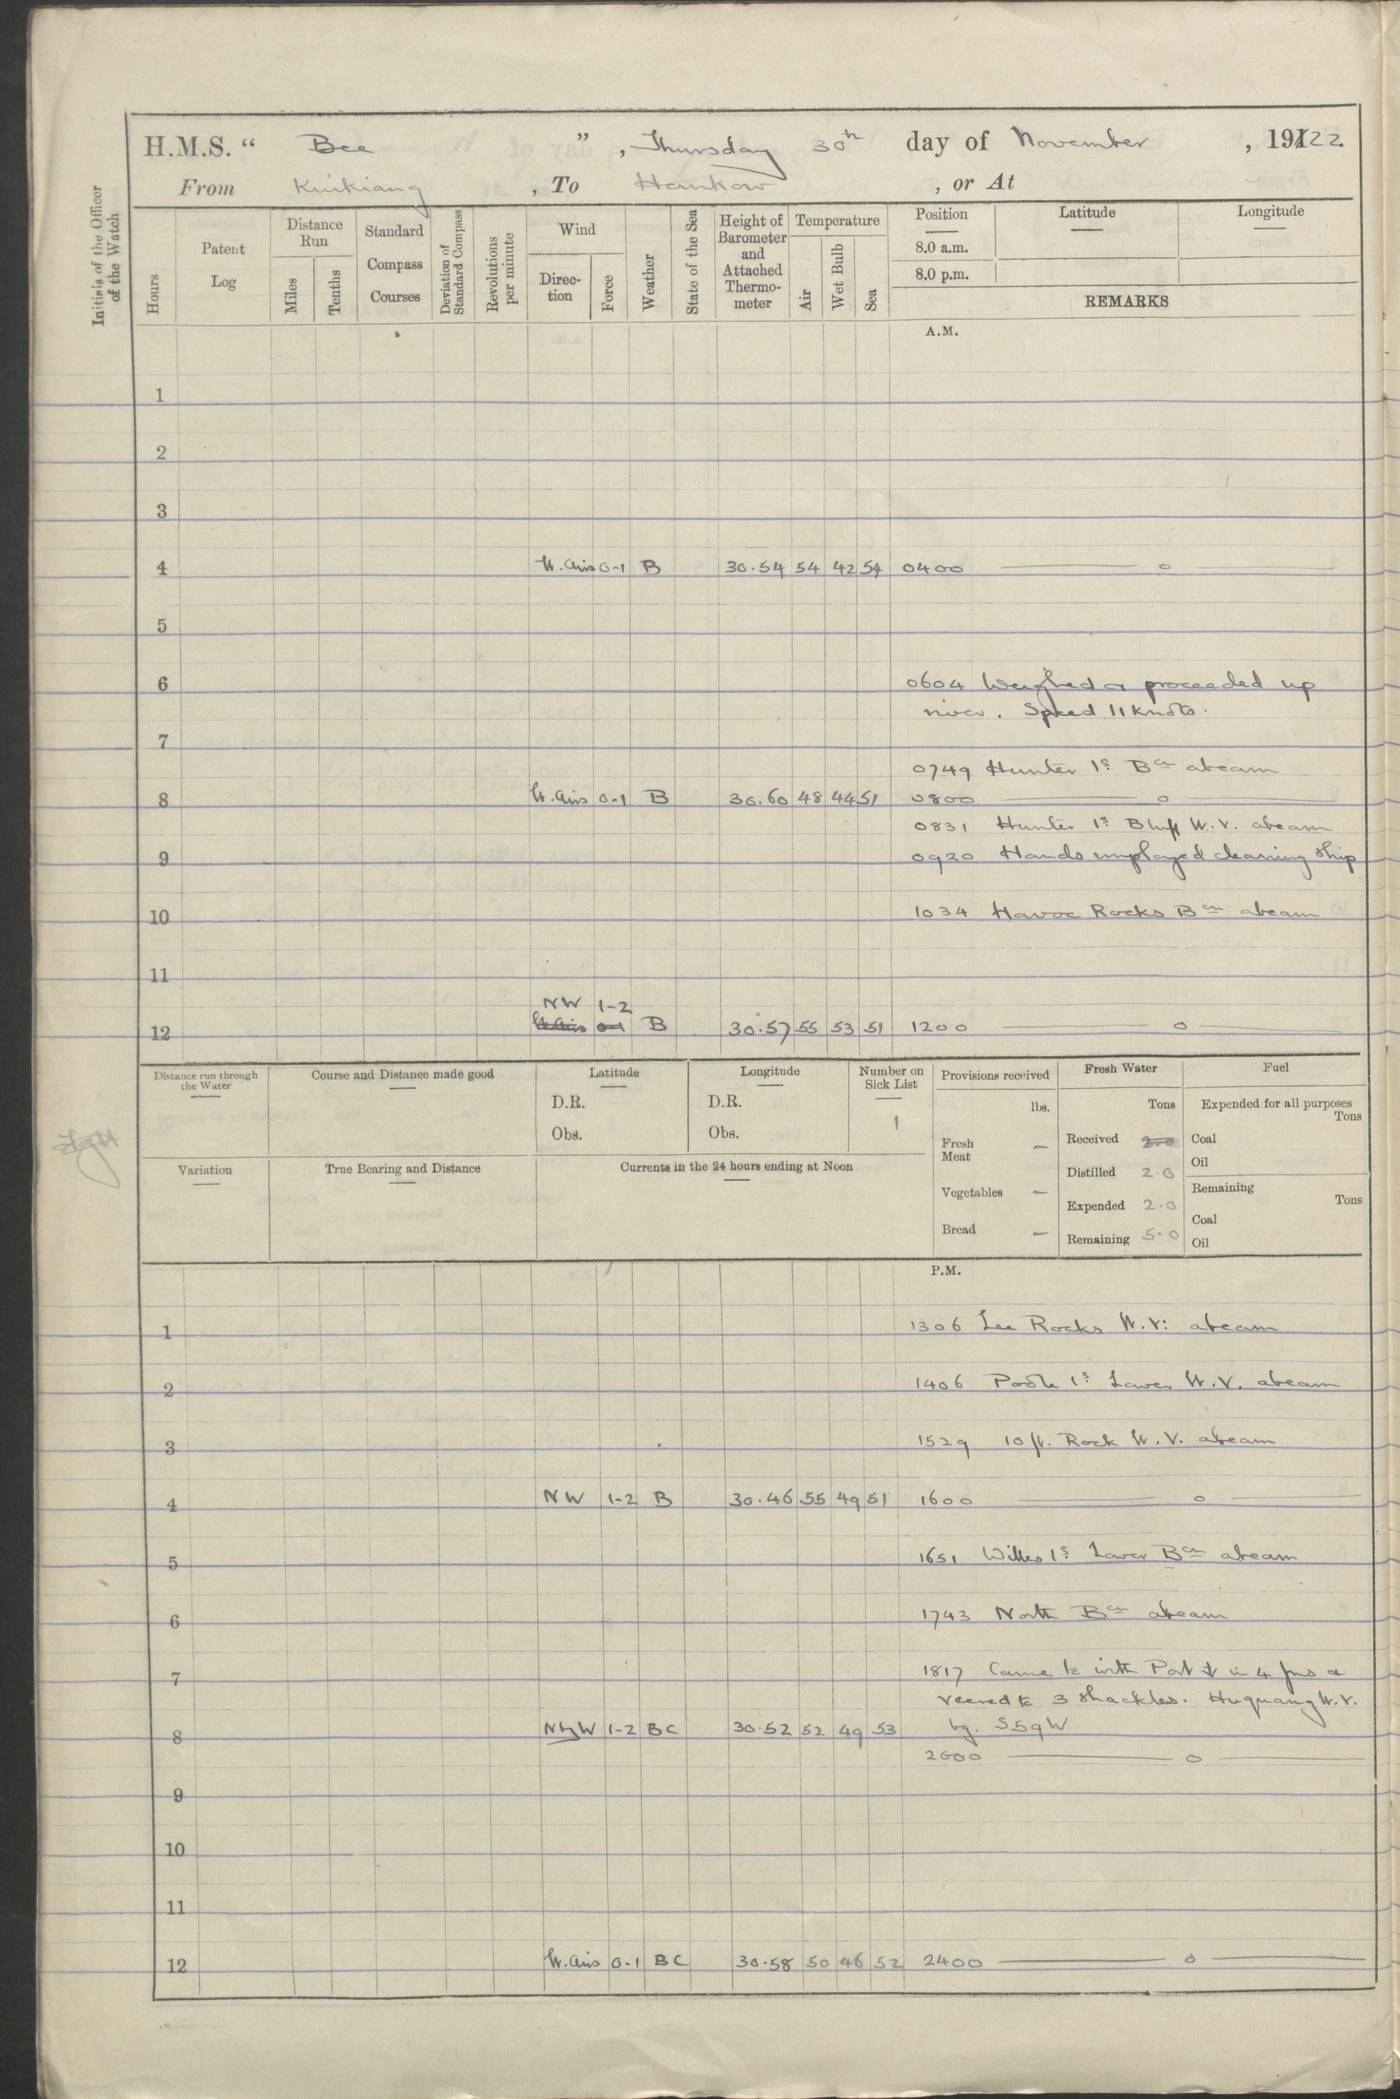 H.M.S. “ Bee ” , Thursday 30th day of November , 19122.
From Kiukiang , To Hankow , or At
Initials of the Officer of the Watch
Hours
Patent Log
Distance Run
Miles
Tenths
Standard Compass Courses
Deviation of Standard Compass
Revolutions per minute
Wind
Direction
Force
Weather
State of the Sea
Height of Barometer and Attached Thermometer
Temperature
Air
Wet Bulb
Sea
Position
8.0 a.m.
8.0 p.m.
Latitude
Longitude
REMARKS
A.M.
1
2
3
4 Lt. airs 0-1 B 30.54 54 42 54 0400 — o —
5
6 0604 Weighed & proceeded up
river. Speed 11 knots.
7
0749 Hunter Is Bcn abeam
8 Lt. airs 0-1 B 30.60 48 44 51 0800 — o —
0831 Hunter Is Bluff W.V. abeam
9 0920 Hands employed cleaning ship
10 1034 Havoc Rocks Bcn abeam
11
NW 1-2
12 Lt. airs 0-1 B 30.57 55 53 51 1200 — o —
Distance run through the Water
Course and Distance made good
Latitude
D.R.
Obs.
Longitude
D.R.
Obs.
Number on Sick List
1
Provisions received
lbs.
Fresh Meat —
Vegetables —
Bread —
Fresh Water
Tons
Received 2.0
Distilled 2.0
Expended 2.0
Remaining 5.0
Fuel
Expended for all purposes
Tons
Coal
Oil
Remaining
Tons
Coal
Oil
Variation
True Bearing and Distance
Currents in the 24 hours ending at Noon
P.M.
1 1306 Lee Rocks W.V. abeam
2 1406 Poole Is Lower W.V. abeam
3 1529 10 ft. Rock W.V. abeam
4 NW 1-2 B 30.46 55 49 51 1600 — o —
5 1651 Willes Is Lower Bcn abeam
6 1743 North Bcn abeam
7 1817 Came to with Port ⚓ in 4 fms &
veered to 3 shackles. Huquang W.V.
8 NbyW 1-2 BC 30.52 52 49 53 bg. S59W
2000 — o —
9
10
11
12 Lt. airs 0-1 BC 30.58 50 46 52 2400 — o —